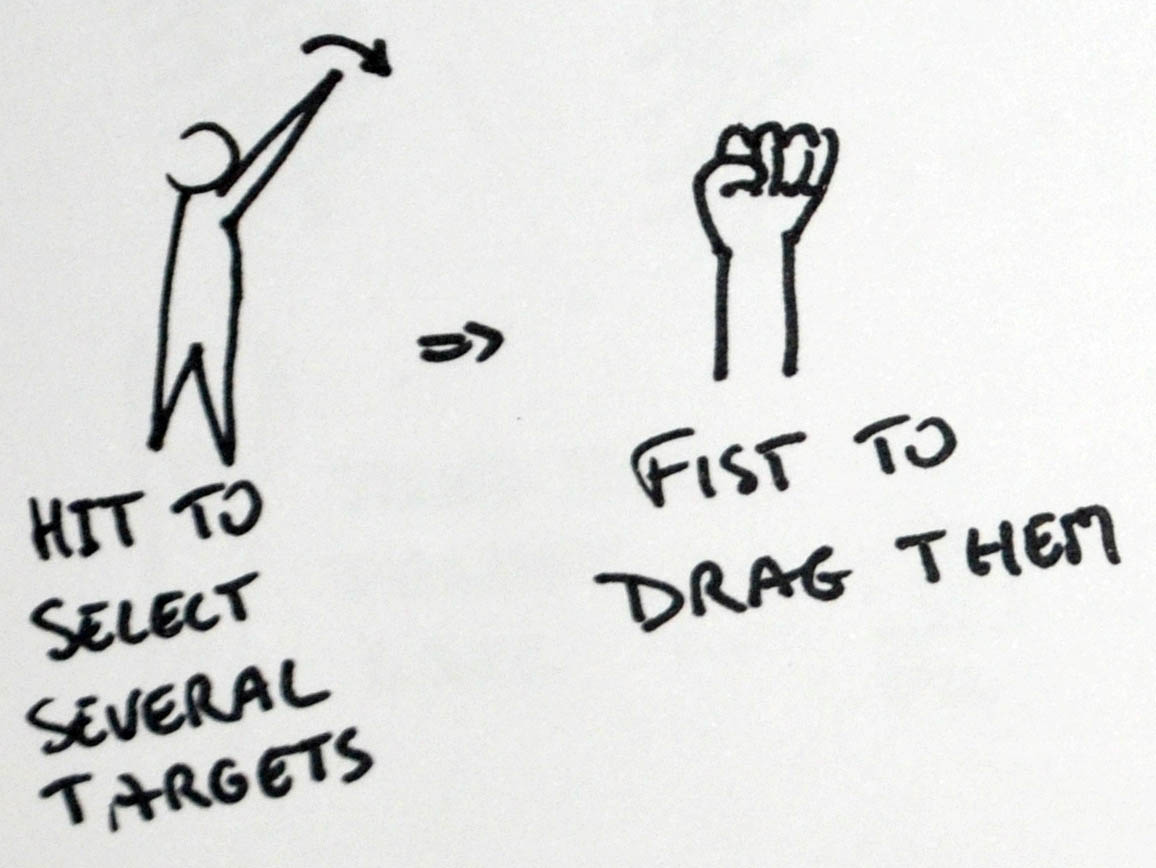 HIT TO
SELECT
SEVERAL
TARGETS
FIST TO
DRAG THEM